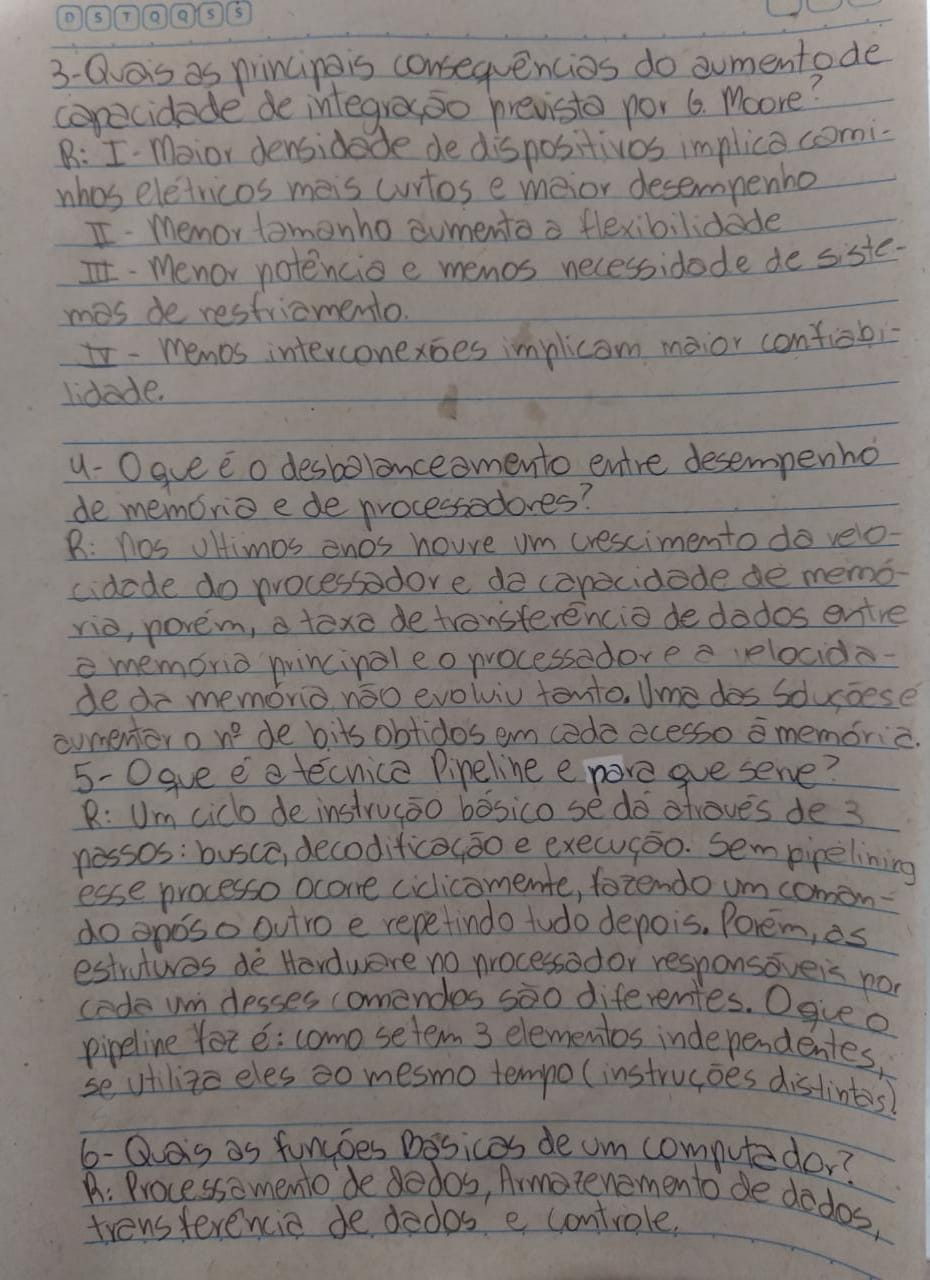 D S T Q Q S S
3-Quais as principais consequências do aumento de
capacidade de integração prevista por G. Moore?
R: I - Maior densidade de dispositivos implica cami-
nhos elétricos mais curtos e maior desempenho
II - Menor tamanho aumenta a flexibilidade
III - Menor potência e menos necessidade de siste-
mas de resfriamento.
IV - Menos interconexões implicam maior confiabi-
lidade.
4- O que é o desbalanceamento entre desempenho
de memória e de processadores?
R: Nos ultimos anos houve um crescimento da velo-
cidade do processador e da capacidade de memó-
ria, porém, a taxa de transferência de dados entre
a memória principal e o processador e a velocida-
de da memória não evoluiu tanto. Uma das soluções é
aumentar o nº de bits obtidos em cada acesso à memória.
5- O que é a técnica Pipeline e para que serve?
R: Um ciclo de instrução básico se dá através de 3
passos: busca, decodificação e execução. Sem pipelining
esse processo ocorre ciclicamente, fazendo um coman-
do após o outro e repetindo tudo depois. Porém, as
estruturas de Hardware no processador responsáveis por
cada um desses comandos são diferentes. O que o
pipeline faz é: como se tem 3 elementos independentes,
se utiliza eles ao mesmo tempo (instruções distintas).
6- Quais as funções básicas de um computador?
R: Processamento de dados, Armazenamento de dados,
transferência de dados e controle.